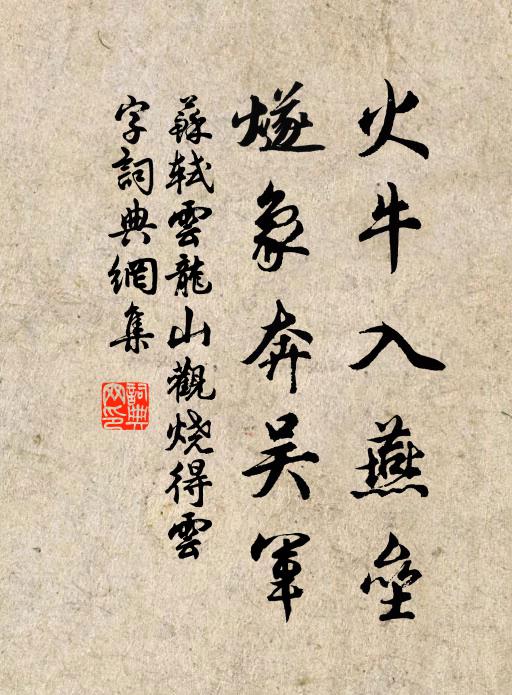 火牛入燕壘
燧象奔吴軍
蘇軾雲龍山觀烧得雲
字詞典網集
詞典
网印